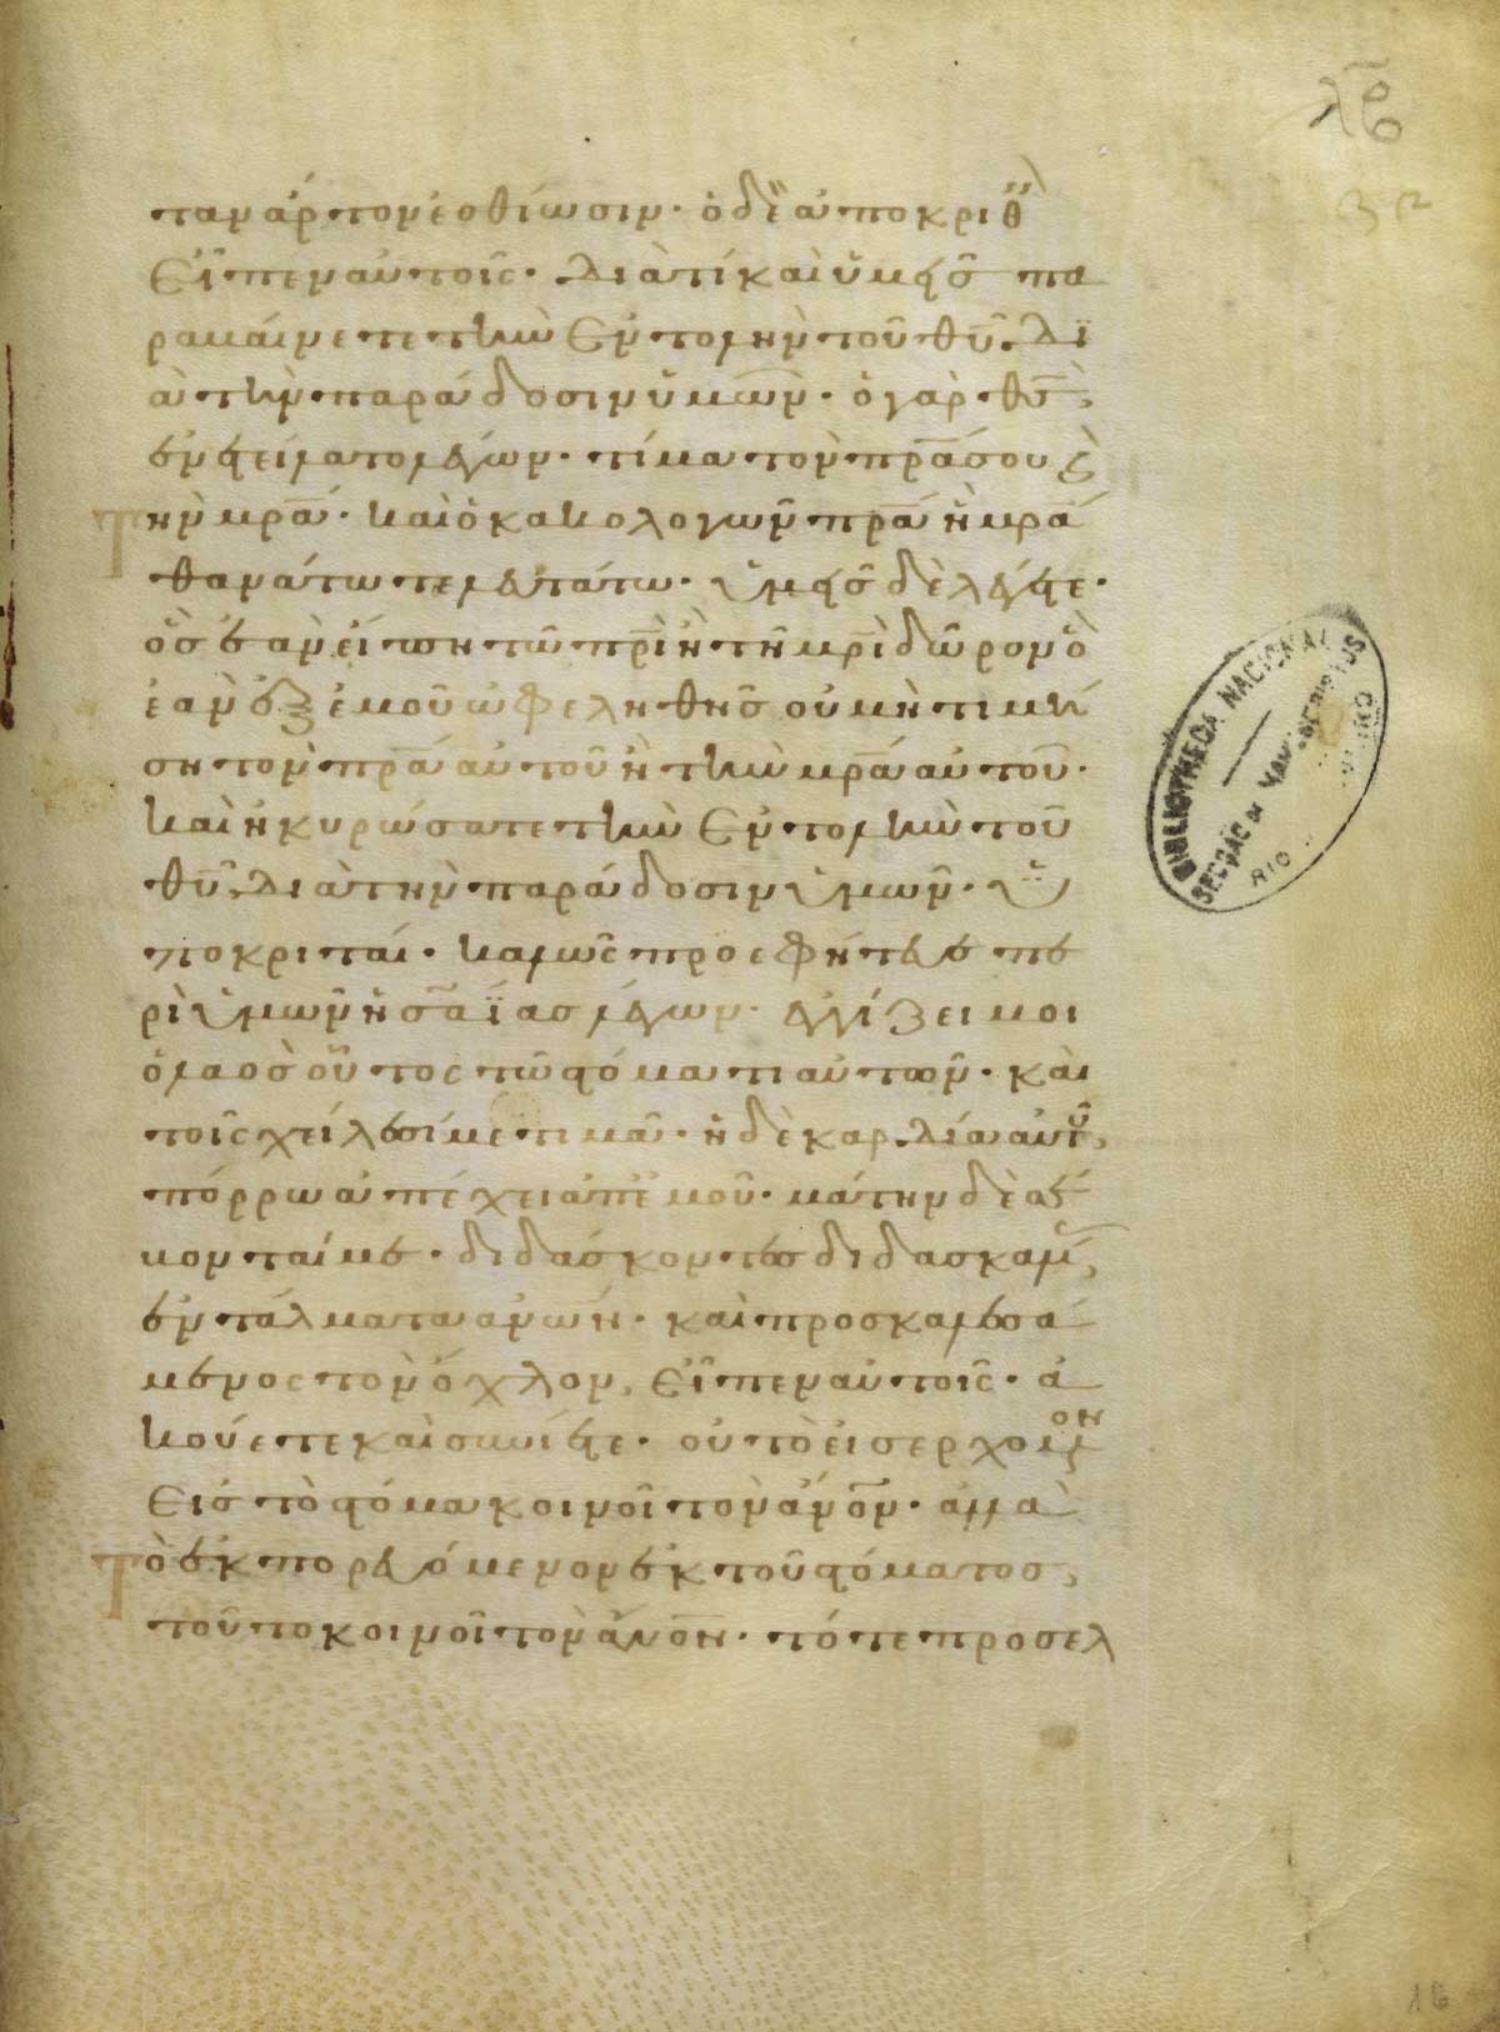 λβ
32
ταν ἄρτον ἐσθίωσιν· ὁ δὲ ἀποκριθ
εἶπεν αὐτοῖς· διὰ τί καὶ ὑμεῖς πα
ραβαίνετε τὴν ἐντολὴν τοῦ θυ̅· δι
ὰ τὴν παράδοσιν ὑμῶν· ὁ γὰρ θς̅,
ἐνετείλατο λέγων· τίμα τὸν πρ̅α σου κ
τὴν μρ̅α· καὶ ὁ κακολογῶν πρ̅α ἢ μρ̅α
θανάτω τελευτάτω· ὑμεῖς δὲ λέγετε·
ὃς ἐὰν εἴπη τῶ πρ̅ι ἢ τῆ μρ̅ι δῶρον ὃ
ἐὰν ἐξ ἐμοῦ ὠφεληθῆς οὐ μὴ τιμή
ση τὸν πρ̅α αὐτοῦ ἢ τὴν μρ̅α αὐτοῦ·
καὶ ἠκυρώσατε τὴν ἐντολὴν τοῦ
θυ̅, διὰ τὴν παράδοσιν ὑμῶν· ὑ
ποκριταί· καλῶς προεφήτευσε πε
ρὶ ὑμῶν ἡσαΐας λέγων· ἐγγίζει μοι
ὁ λαὸς οὗτος τῶ στόματι αὐτῶν· καὶ
τοῖς χείλεσί με τιμᾶ· ἡ δὲ καρδία αὐτ,
πόρρω ἀπέχει ἀπ' ἐμοῦ· μάτην δὲ σέ
βονταί με· διδάσκοντες διδασκαλ,
ἐντάλματα αν̅ων· καὶ προσκαλεσά
μενος τὸν ὄχλον, εἶπεν αὐτοῖς· ἀ
κούετε καὶ συνίετε· οὐ τὸ εἰσερχόμον
εἰς τὸ στόμα κοινοῖ τὸν ἄν̅ον· ἀλλὰ
τὸ ἐκπορευόμενον ἐκ τοῦ στόματος,
τοῦτο κοινοῖ τὸν ἄν̅ον· τότε προσελ
BIBLIOTHECA NACIONAL
SECÇÃO DE MANUSCRIPTOS
RIO
16